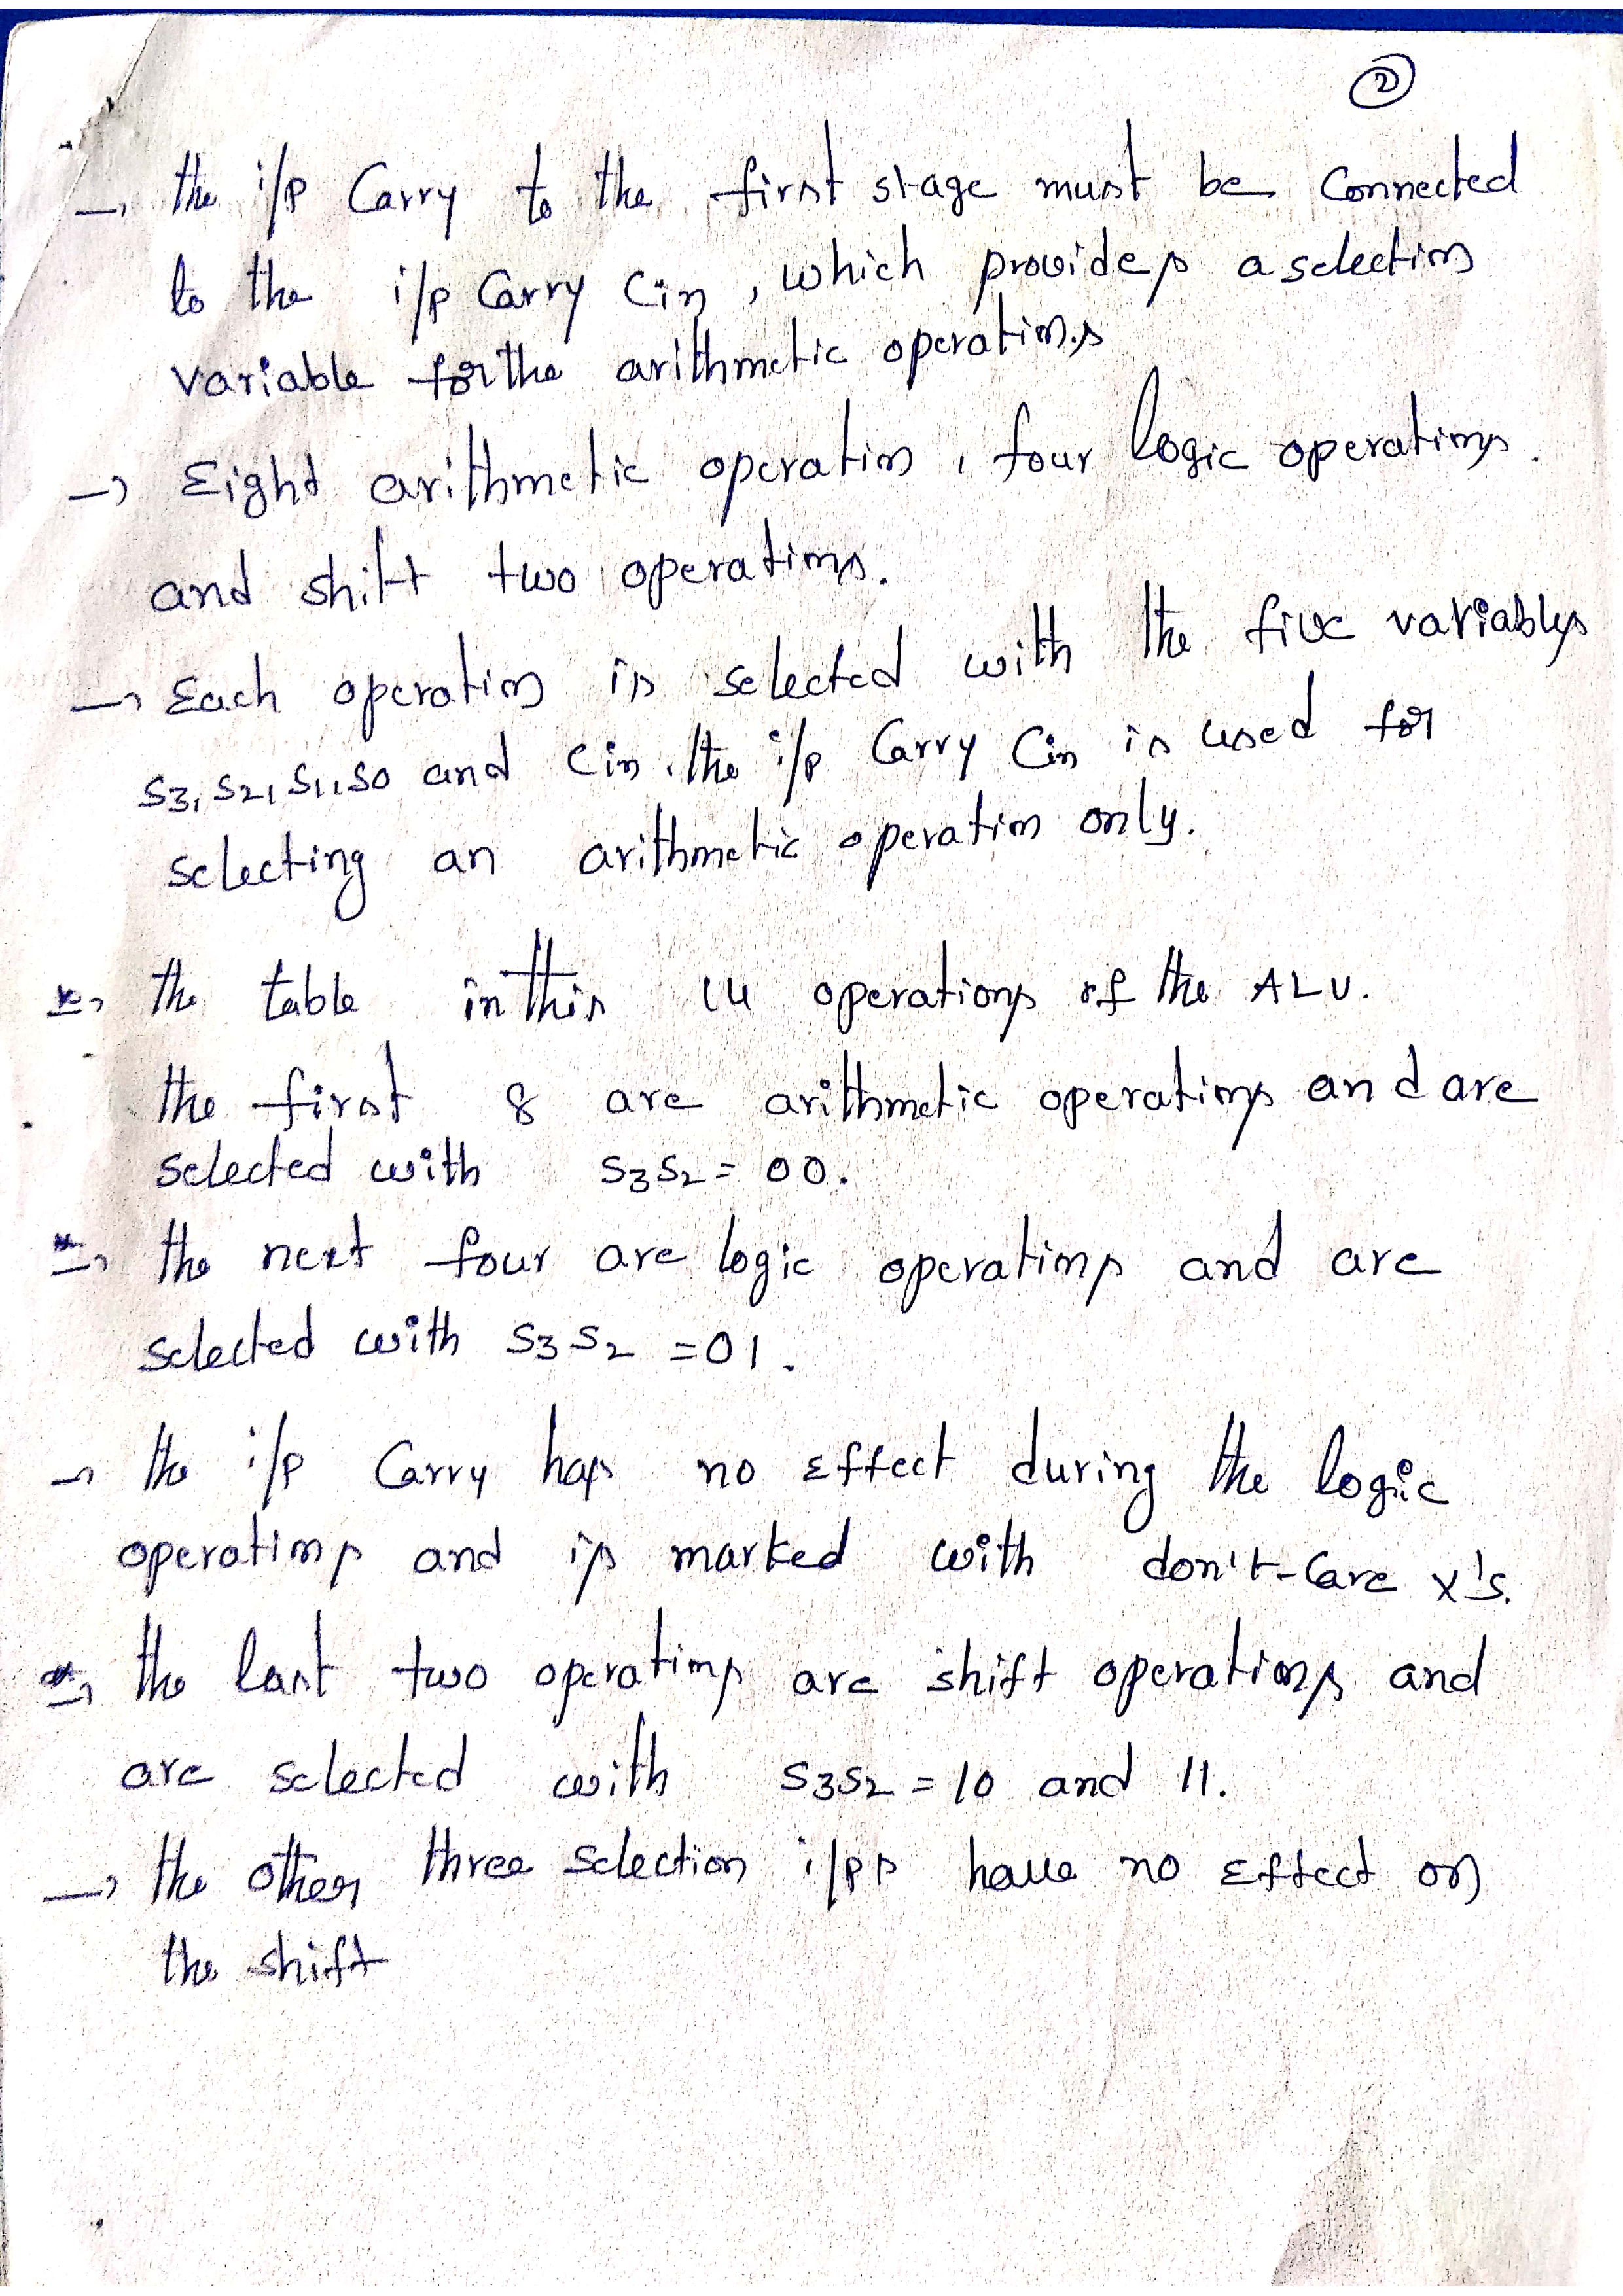 ②
→ the i/p Carry to the first stage must be Connected
to the i/p Carry Cin, which provides a selection
variable for the arithmetic operations
→ Eight arithmetic operation, four logic operations.
and shift two operations.
→ Each operation is selected with the five variables
S3, S2, S1, S0 and Cin. the i/p Carry Cin is used for
selecting an arithmetic operation only.
→ the table in this 14 operations of the ALU.
the first 8 are arithmetic operations and are
selected with S3S2 = 00.
→ the next four are logic operations and are
selected with S3S2 = 01.
→ the i/p Carry has no Effect during the logic
operations and is marked with don't-Care x's.
→ the last two operations are shift operations and
are selected with S3S2 = 10 and 11.
→ the other three selection i/ps have no Effect on
the shift